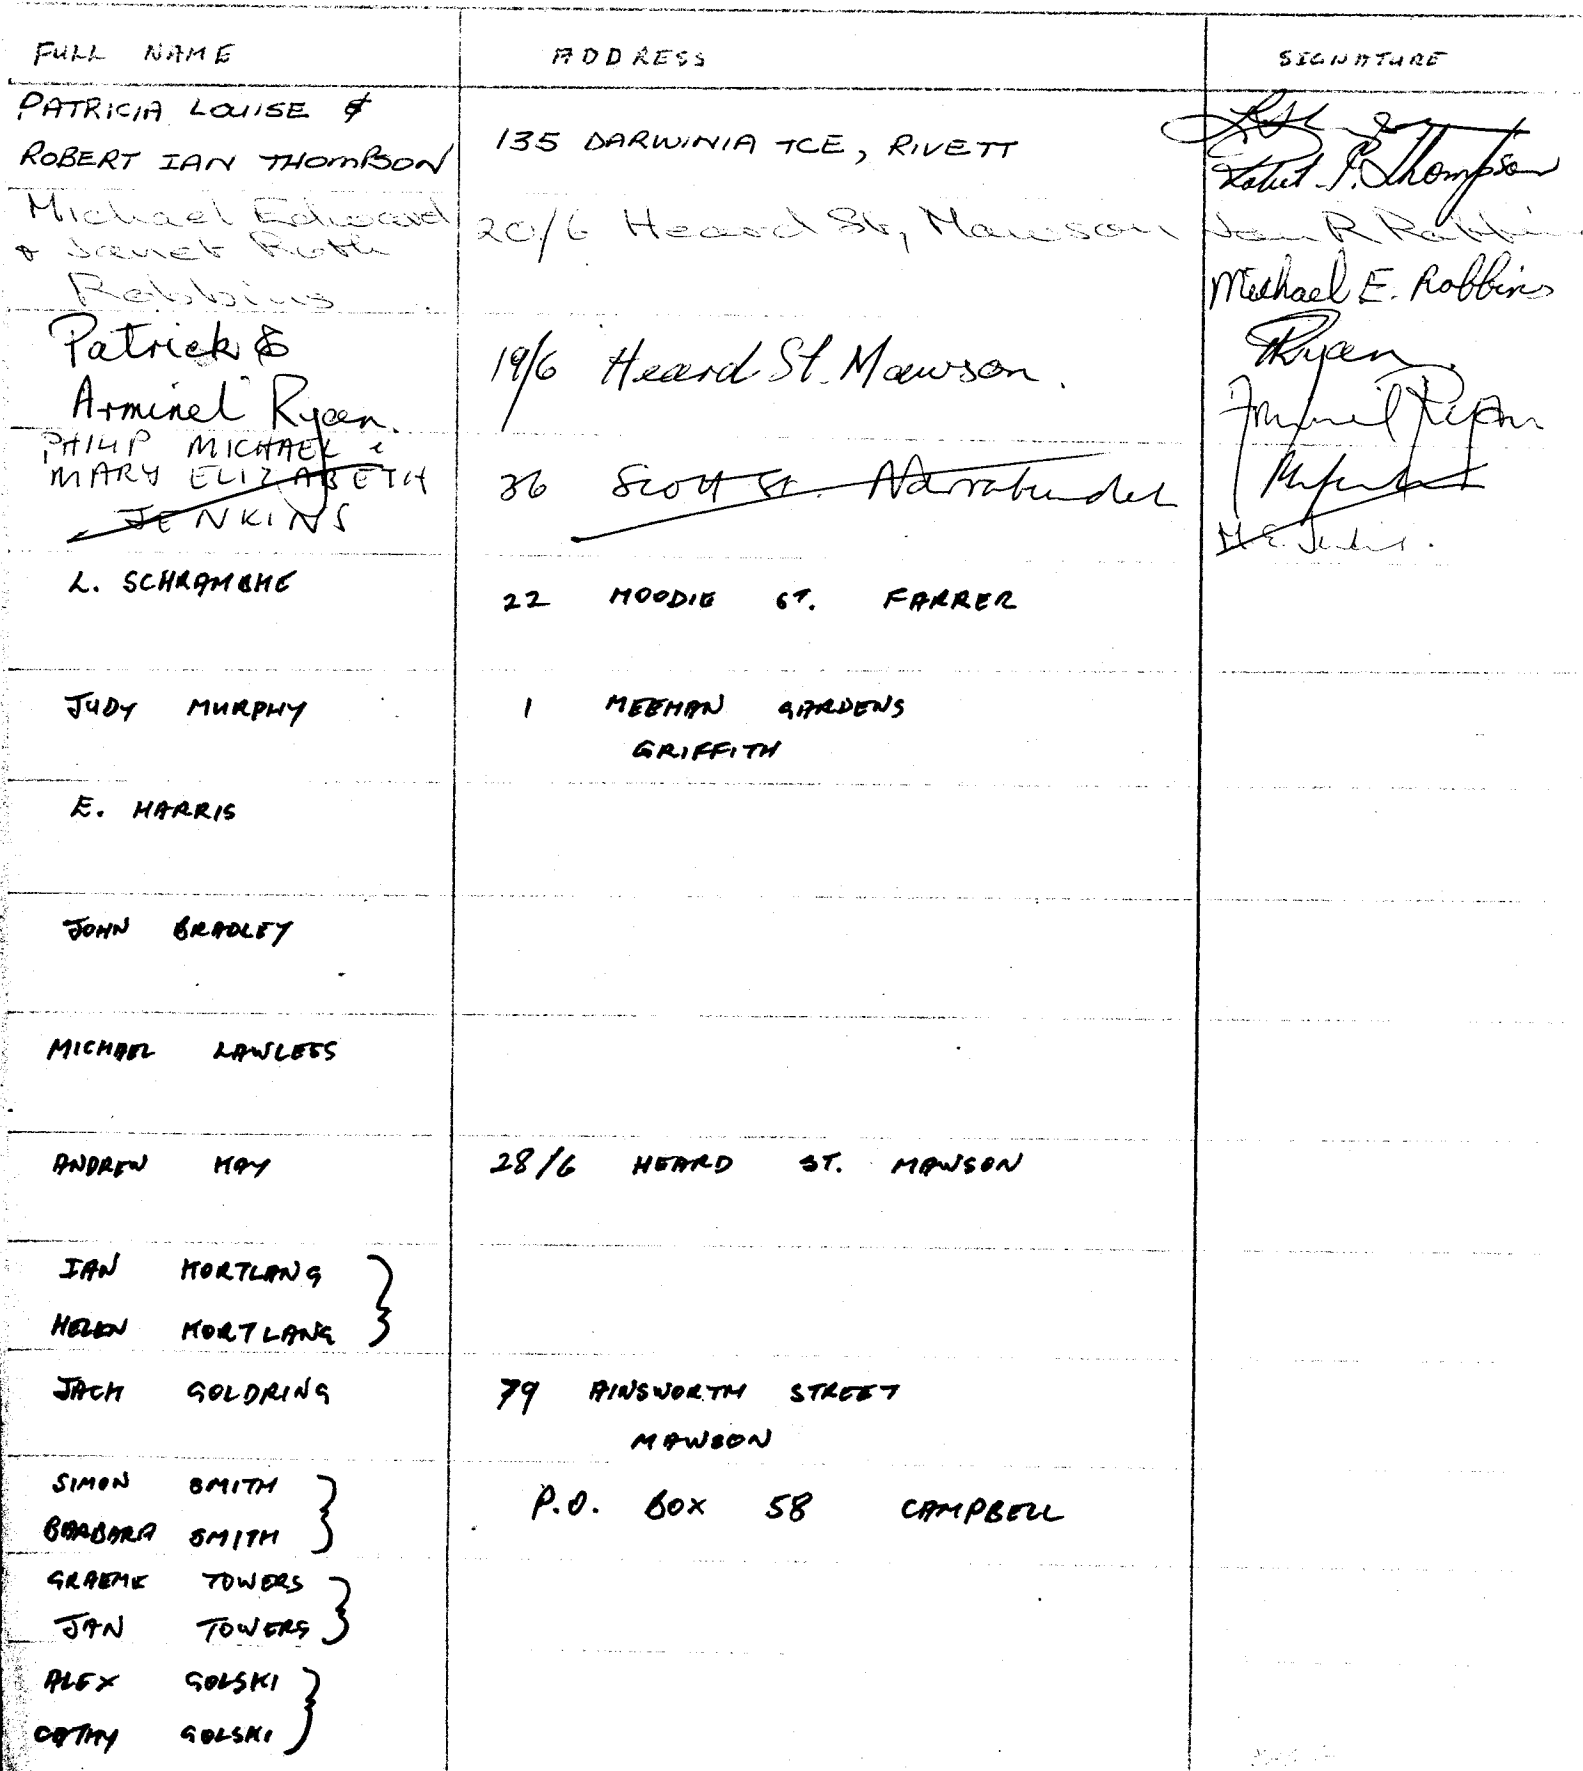 FULL NAME ADDRESS SIGNATURE
PATRICIA LOUISE &
ROBERT IAN THOMPSON 135 DARWINIA TCE, RIVETT
Robert I. Thompson
Michael Edward
& Janet Ruth
Robbins 20/6 Heard St, Mawson Jan R Robbins
Michael E. Robbins
Patrick &
Arminel Ryan. 19/6 Heard St. Mawson.
PRyan.
Arminel Ryan
PHILIP MICHAEL &
MARY ELIZABETH
JENKINS 36 Scott St. Narrabundah
M. E. Jenkins.
L. SCHRAMEHE 22 MOODIE ST. FARRER
JUDY MURPHY 1 MEEHAN GARDENS
GRIFFITH
E. HARRIS
JOHN BRADLEY
MICHAEL LAWLESS
ANDREW KAY 28/6 HEARD ST. MAWSON
IAN KORTLANG
HELEN KORTLANG
JACK GOLDRING 79 AINSWORTH STREET
MAWSON
SIMON SMITH
BARBARA SMITH P.O. BOX 58 CAMPBELL
GRAEME TOWERS
JAN TOWERS
ALEX GOLSKI
CATHY GOLSKI